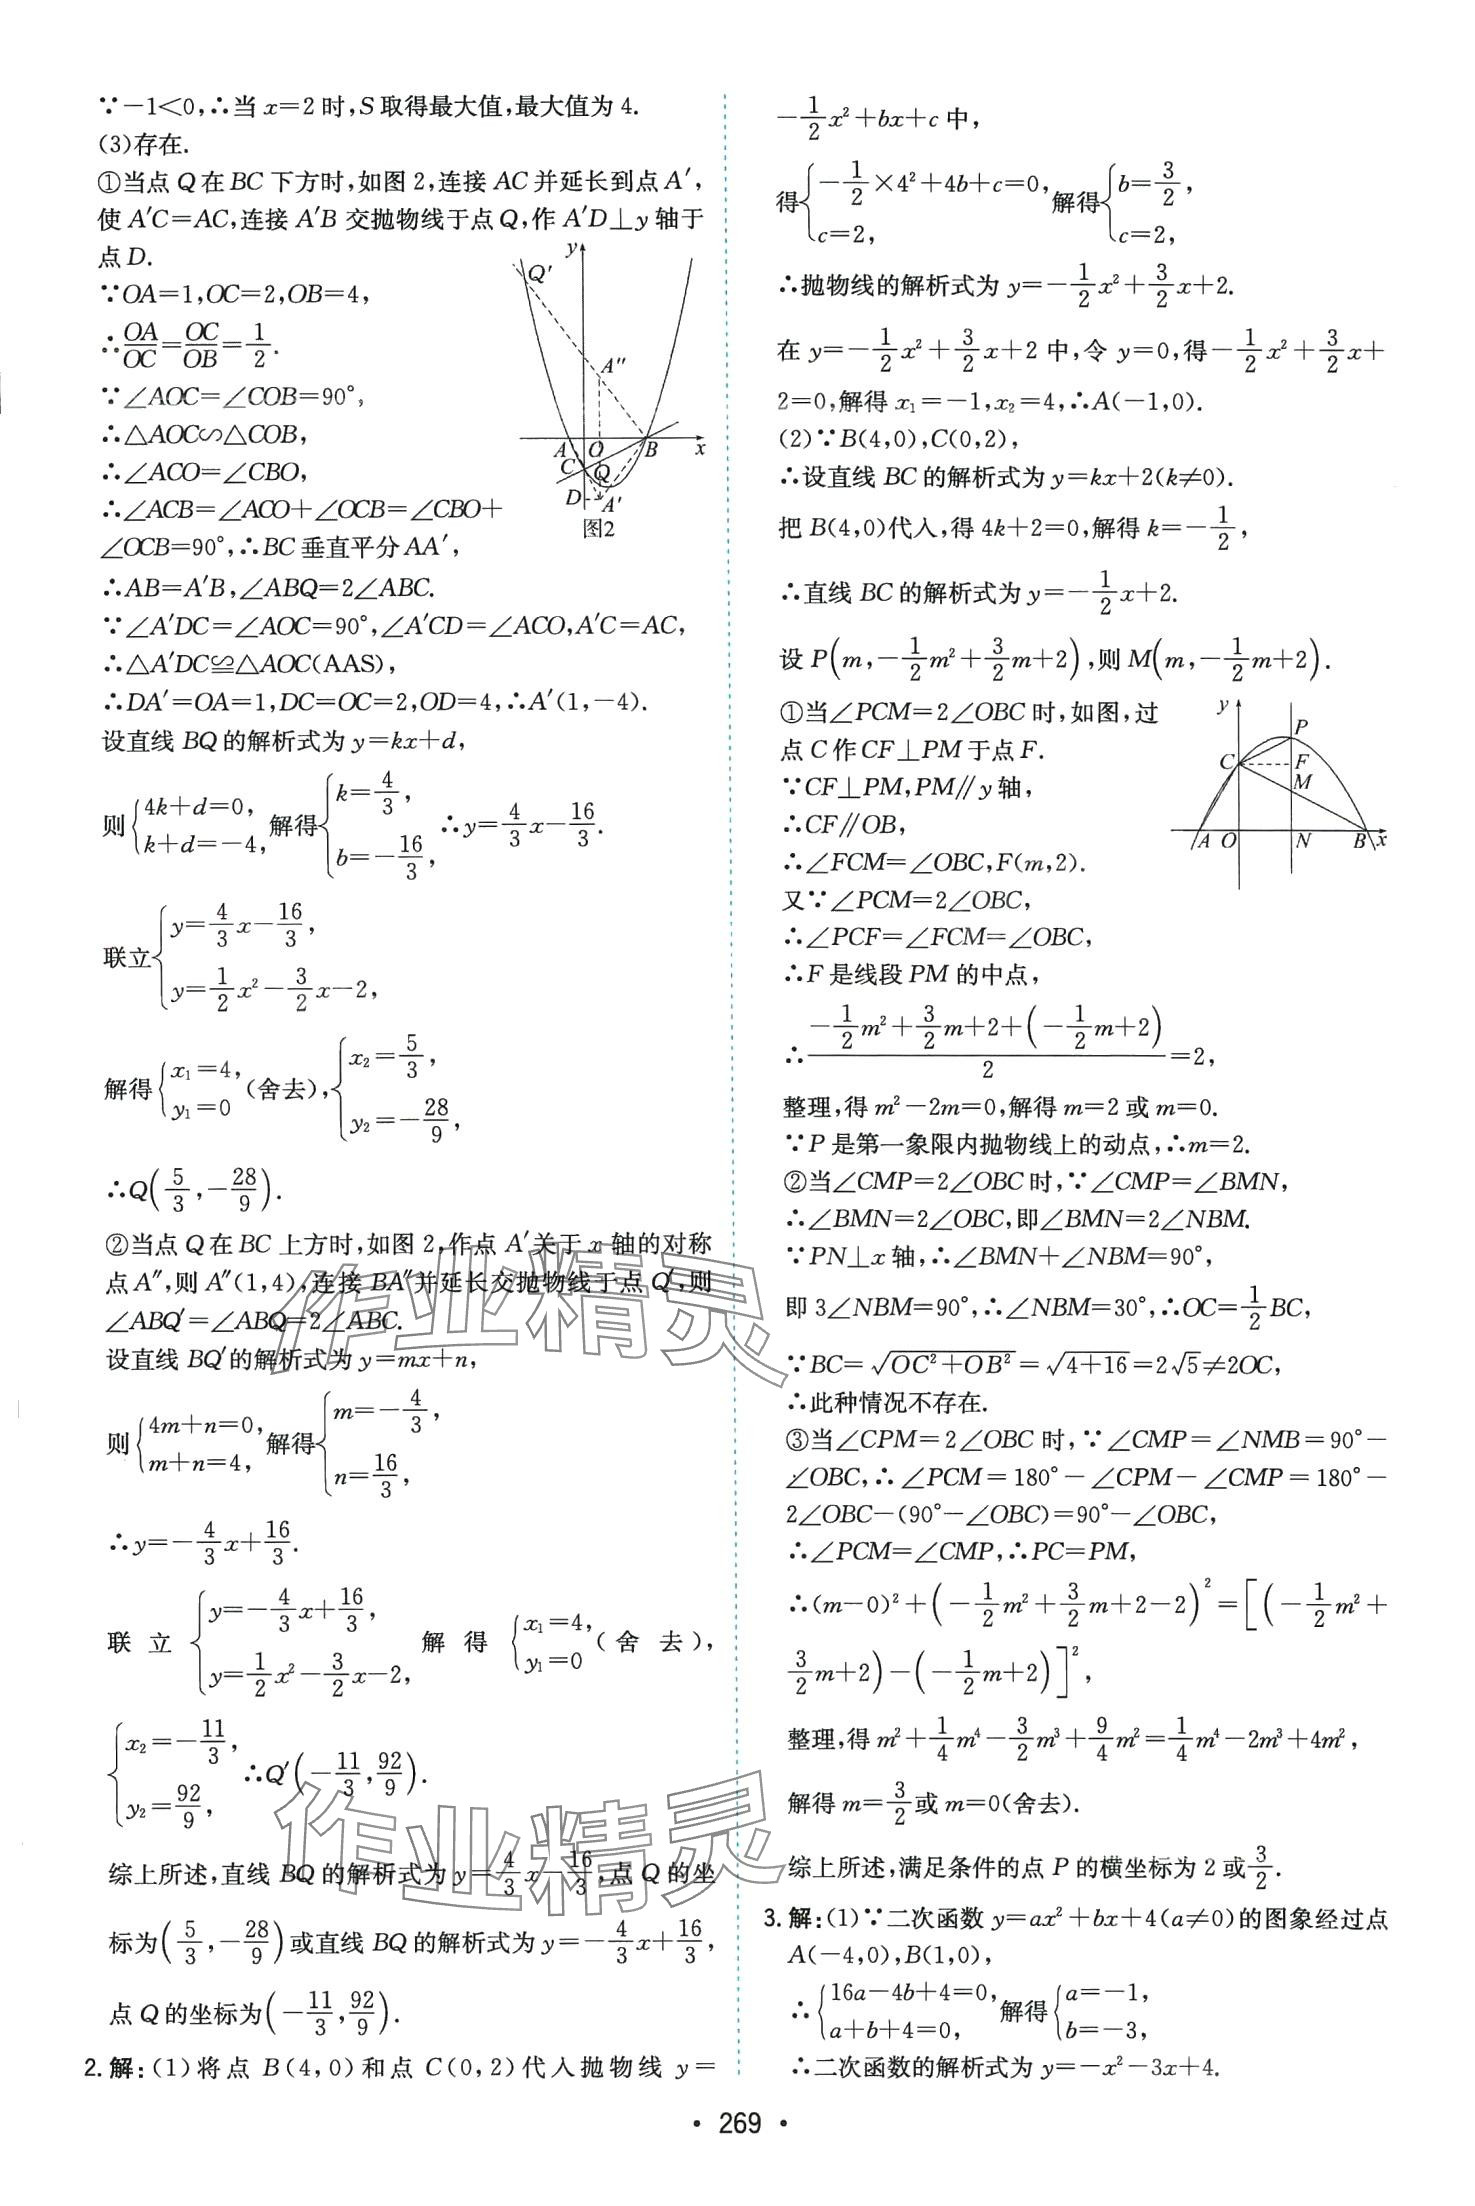 ∵−1<0,∴当 x=2 时,S 取得最大值,最大值为 4.
(3)存在.
①当点 Q 在 BC 下方时,如图 2,连接 AC 并延长到点 A′,
使 A′C=AC,连接 A′B 交抛物线于点 Q,作 A′D⊥y 轴于
点 D.
∵OA=1,OC=2,OB=4,
∴OA/OC=OC/OB=1/2.
∵∠AOC=∠COB=90°,
∴△AOC∽△COB,
∴∠ACO=∠CBO,
∴∠ACB=∠ACO+∠OCB=∠CBO+
∠OCB=90°,∴BC 垂直平分 AA′,
y Q′ A″ A O B x C Q D A′
图2
∴AB=A′B,∠ABQ=2∠ABC.
∵∠A′DC=∠AOC=90°,∠A′CD=∠ACO,A′C=AC,
∴△A′DC≌△AOC(AAS),
∴DA′=OA=1,DC=OC=2,OD=4,∴A′(1,−4).
设直线 BQ 的解析式为 y=kx+d,
则{4k+d=0, k+d=−4, 解得{k=4/3, b=−16/3, ∴y=4/3x−16/3.
联立{y=4/3x−16/3, y=1/2x²−3/2x−2,
解得{x₁=4, y₁=0 (舍去),{x₂=5/3, y₂=−28/9,
∴Q(5/3,−28/9).
②当点 Q 在 BC 上方时,如图 2,作点 A′关于 x 轴的对称
点 A″,则 A″(1,4),连接 BA″并延长交抛物线于点 Q′,则
∠ABQ′=∠ABQ=2∠ABC.
设直线 BQ′的解析式为 y=mx+n,
则{4m+n=0, m+n=4, 解得{m=−4/3, n=16/3,
∴y=−4/3x+16/3.
联立{y=−4/3x+16/3, y=1/2x²−3/2x−2, 解得{x₁=4, y₁=0 (舍去),
{x₂=−11/3, y₂=92/9, ∴Q′(−11/3,92/9).
综上所述,直线 BQ 的解析式为 y=4/3x−16/3,点 Q 的坐
标为(5/3,−28/9)或直线 BQ 的解析式为 y=−4/3x+16/3,
点 Q 的坐标为(−11/3,92/9).
2. 解:(1)将点 B(4,0)和点 C(0,2)代入抛物线 y=
−1/2x²+bx+c 中,
得{−1/2×4²+4b+c=0, c=2, 解得{b=3/2, c=2,
∴抛物线的解析式为 y=−1/2x²+3/2x+2.
在 y=−1/2x²+3/2x+2 中,令 y=0,得−1/2x²+3/2x+
2=0,解得 x₁=−1,x₂=4,∴A(−1,0).
(2)∵B(4,0),C(0,2),
∴设直线 BC 的解析式为 y=kx+2(k≠0).
把 B(4,0)代入,得 4k+2=0,解得 k=−1/2,
∴直线 BC 的解析式为 y=−1/2x+2.
设 P(m,−1/2m²+3/2m+2),则 M(m,−1/2m+2).
①当∠PCM=2∠OBC 时,如图,过
点 C 作 CF⊥PM 于点 F.
∵CF⊥PM,PM∥y 轴,
∴CF∥OB,
∴∠FCM=∠OBC,F(m,2).
又∵∠PCM=2∠OBC,
y P C F M A O N B x
∴∠PCF=∠FCM=∠OBC,
∴F 是线段 PM 的中点,
∴(−1/2m²+3/2m+2+(−1/2m+2))/2=2,
整理,得 m²−2m=0,解得 m=2 或 m=0.
∵P 是第一象限内抛物线上的动点,∴m=2.
②当∠CMP=2∠OBC 时,∵∠CMP=∠BMN,
∴∠BMN=2∠OBC,即∠BMN=2∠NBM.
∵PN⊥x 轴,∴∠BMN+∠NBM=90°,
即 3∠NBM=90°,∴∠NBM=30°,∴OC=1/2BC,
∵BC=√(OC²+OB²)=√(4+16)=2√5≠2OC,
∴此种情况不存在.
③当∠CPM=2∠OBC 时,∵∠CMP=∠NMB=90°−
∠OBC,∴∠PCM=180°−∠CPM−∠CMP=180°−
2∠OBC−(90°−∠OBC)=90°−∠OBC,
∴∠PCM=∠CMP,∴PC=PM,
∴(m−0)²+(−1/2m²+3/2m+2−2)²=[(−1/2m²+
3/2m+2)−(−1/2m+2)]²,
整理,得 m²+1/4m⁴−3/2m³+9/4m²=1/4m⁴−2m³+4m²,
解得 m=3/2或 m=0(舍去).
综上所述,满足条件的点 P 的横坐标为 2 或3/2.
3. 解:(1)∵二次函数 y=ax²+bx+4(a≠0)的图象经过点
A(−4,0),B(1,0),
∴{16a−4b+4=0, a+b+4=0, 解得{a=−1, b=−3,
∴二次函数的解析式为 y=−x²−3x+4.
作业精灵
作业精灵
• 269 •